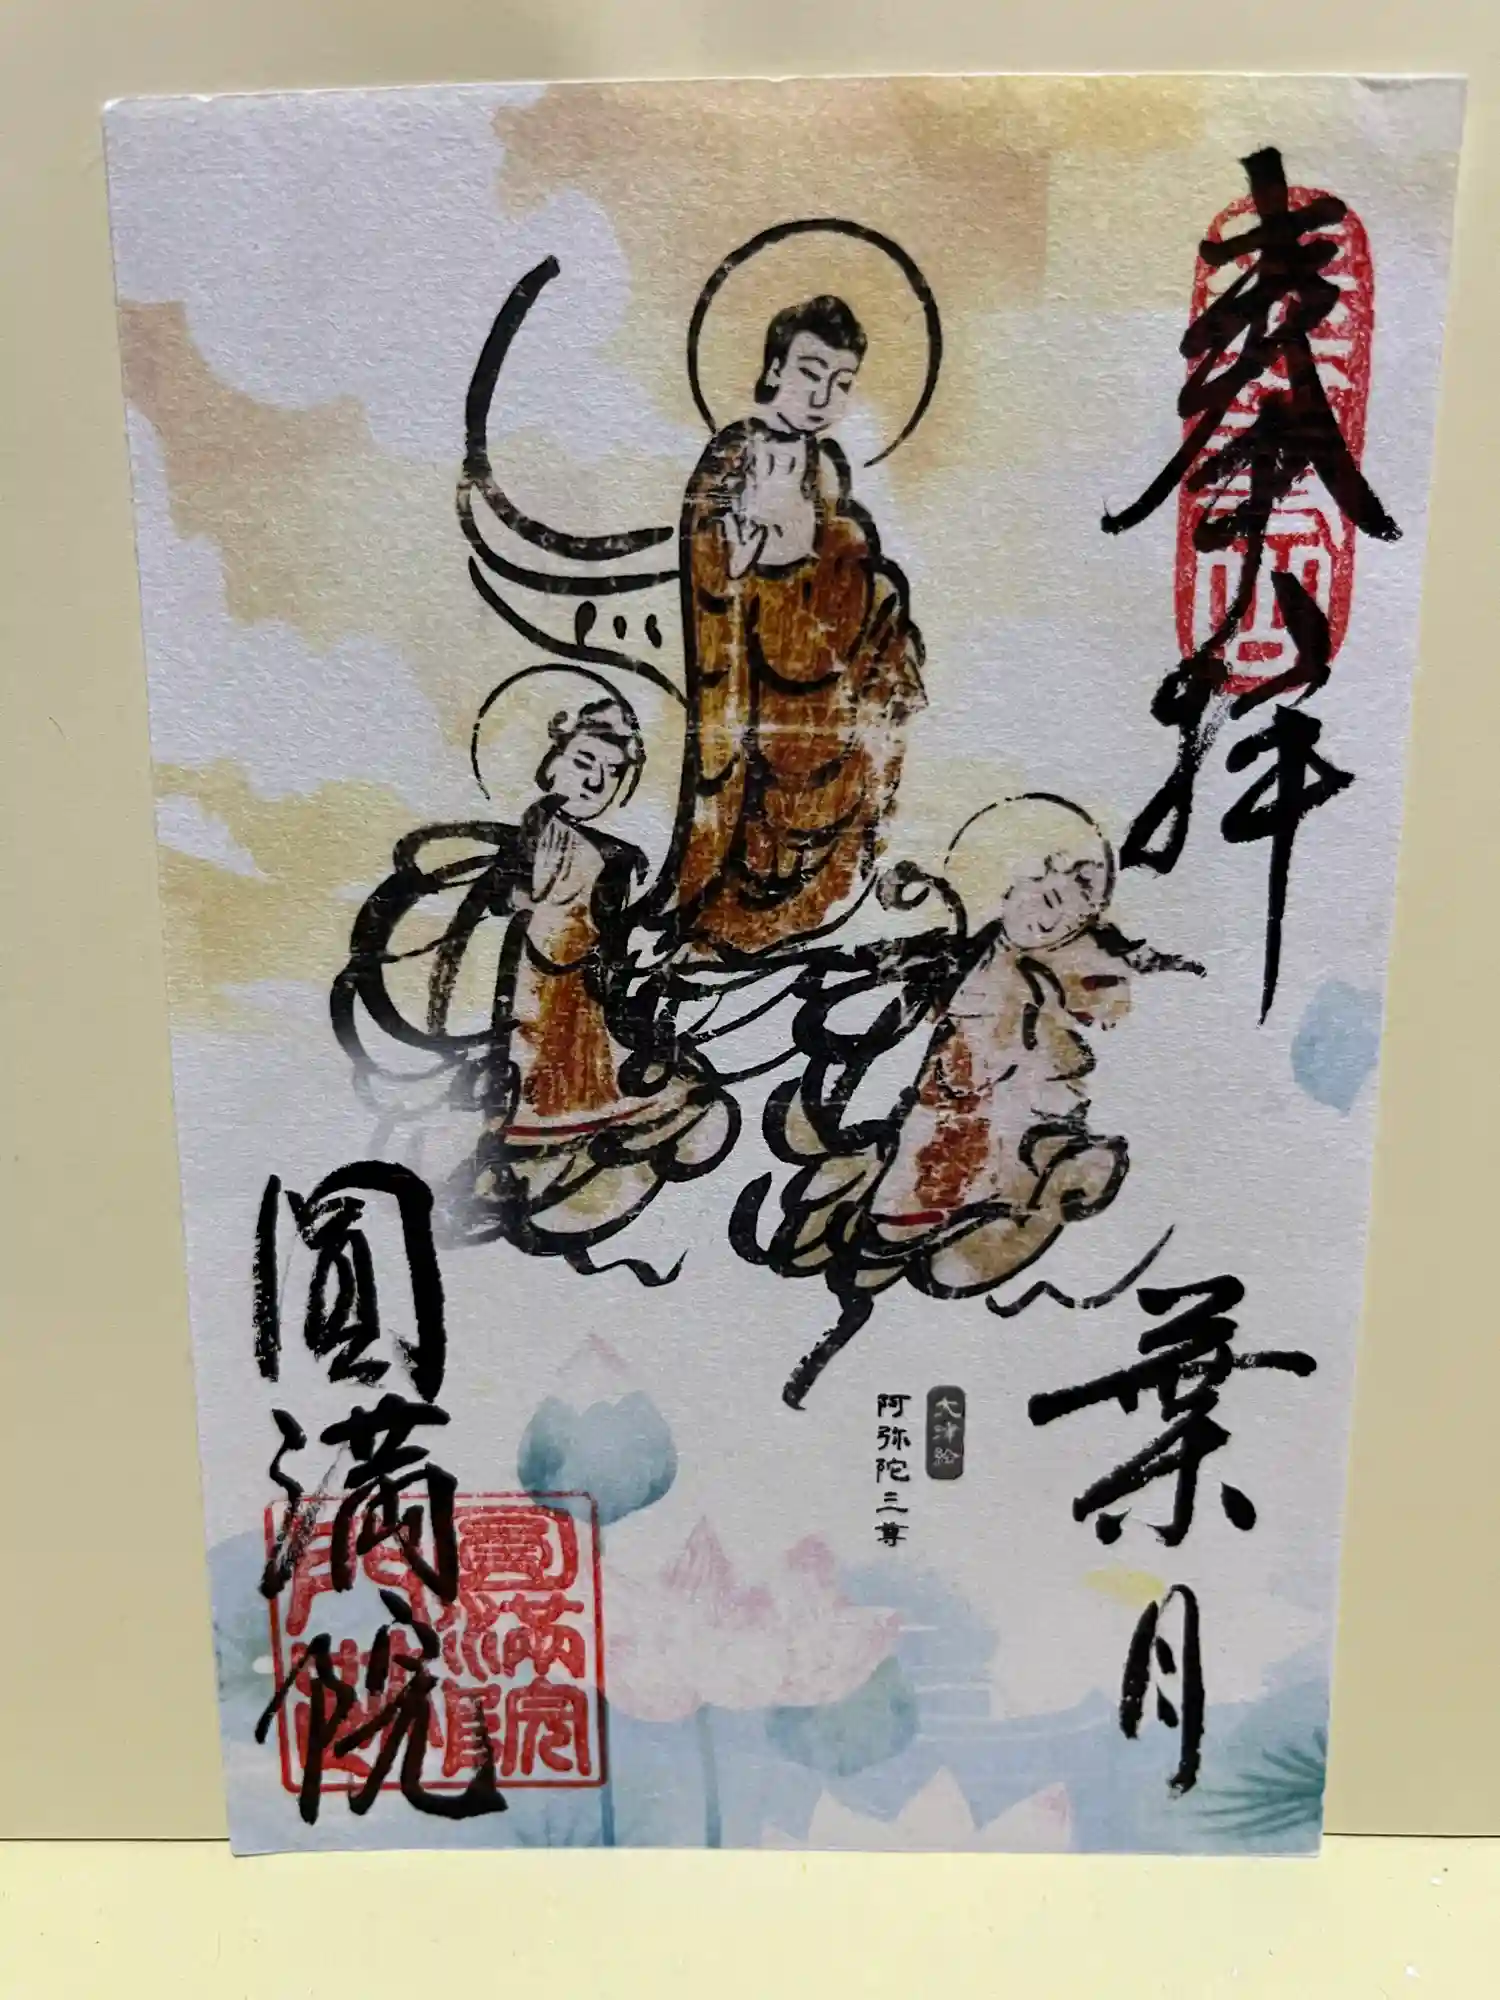 奉拝
葉月
大津絵
阿弥陀三尊
圓満院
圓満院
門跡